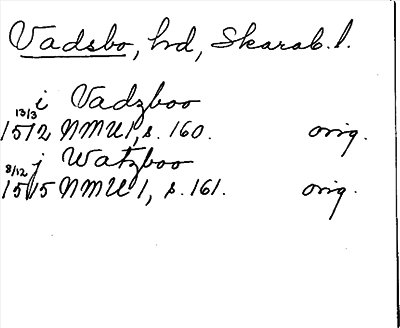 Vadsbo, hd, Skarab. l.
i Vadzboo
13/3
1512 NMU 1, s. 160. orig.
j Watzboo
8/12
1515 NMU 1, s. 161. orig.